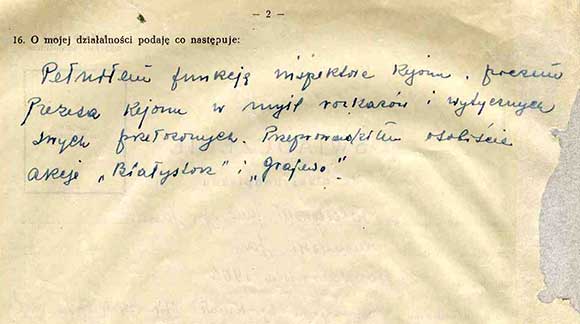 – 2 –
16. O mojej działalności podaję co następuje:
Pełniłem funkcję inspektora Rejonu, poczem
Prezesa Rejonu w myśl rozkazów i wytycznych
swych przełożonych. Przeprowadziłem osobiście
akcje „Białystok” i „Grajewo”.